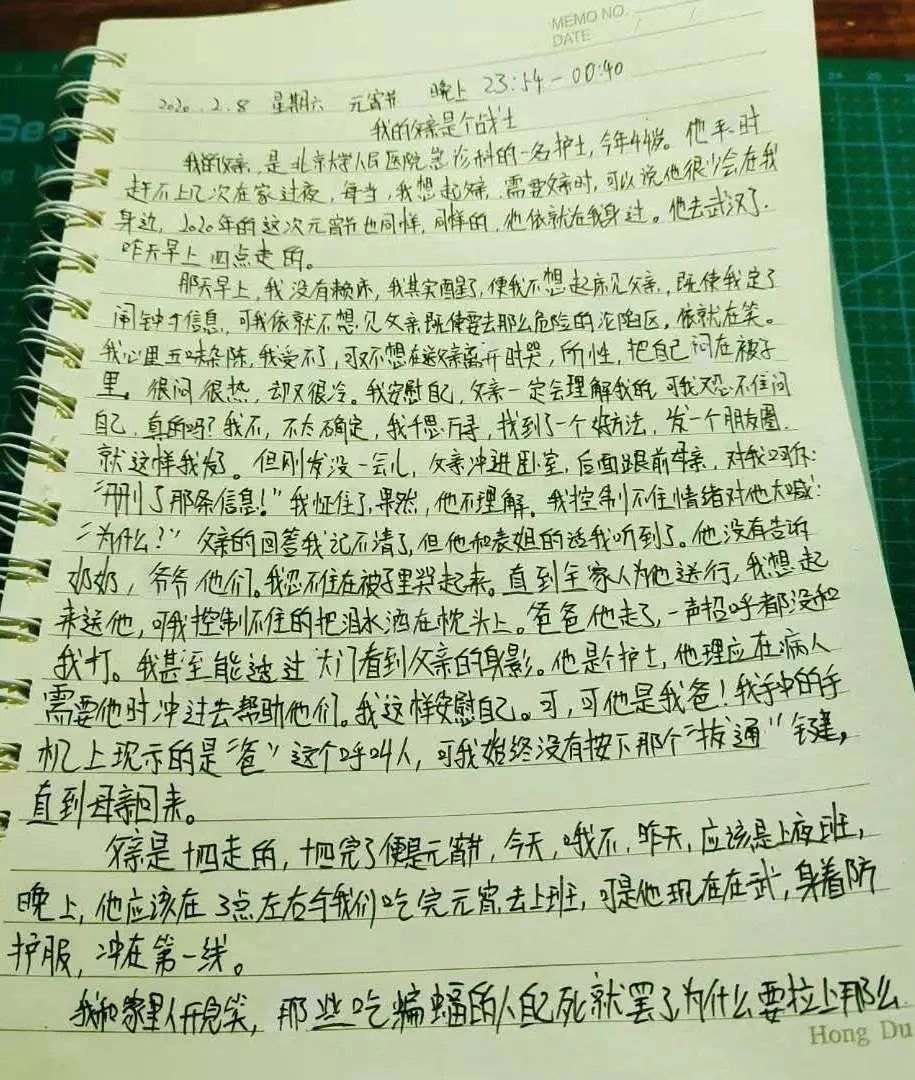 MEMO NO.
DATE / /
Se
2020.2.8 星期六 元宵节 晚上 23:54-00:40
我的父亲是个战士
我的父亲,是北京大学人民医院急诊科的一名护士,今年44岁。他平时
赶不上几次在家过夜,每当,我想起父亲,需要父亲时,可以说他很少会在我
身边,2020年的这次元宵节也同样,同样的,他依就在我身边。他去武汉了.
昨天早上四点走的。
那天早上,我没有赖床,我其实醒了,便我不想起床见父亲,既使我定了
闹钟于信息,可我依就不想见父亲既使要去那么危险的沦陷区,依就在笑。
我心里五味杂陈,我受不了,可又不想在父亲离开时哭,所性,把自己闷在被子
里。很闷很热,却又很冷。我安慰自己,父亲一定会理解我的,可我又忍不住问
自己,真的吗?我不,不太确定,我千思万寻,找到了一个好方法,发一个朋友圈.
就这样我发了。但刚发没一会儿,父亲冲进卧室,后面跟前母亲,对我叼你:
“删了那条信息!”我怔住了,果然,他不理解。我控制不住情绪对他大喊:
“为什么?”父亲的回答我记不清了,但他和表姐的话我听到了。他没有告诉
奶奶,爷爷他们。我忍不住在被子里哭起来。直到全家人为他送行,我想起
来送他,可我控制不住的把泪水洒在枕头上。爸爸他走了,一声招呼都没和
我打。我甚至能透过大门看到父亲的身影。他是个护士,他理应在病人
需要他时冲过去帮助他们。我这样安慰自己。可,可他是我爸!我手中的手
机上现示的是“爸”这个呼叫人,可我始终没有按下那个“拔通”键,
直到母亲回来。
父亲是十四走的,十四完了便是元宵节,今天,哦不,昨天,应该是上夜班,
晚上,他应该在3点左右与我们吃完元宵去上班,可是他现在在武,身着防
护服,冲在第一线。
我和家里人开玩笑,那些吃蝙蝠的人自己死就罢了为什么要拉上那么
Hong Du